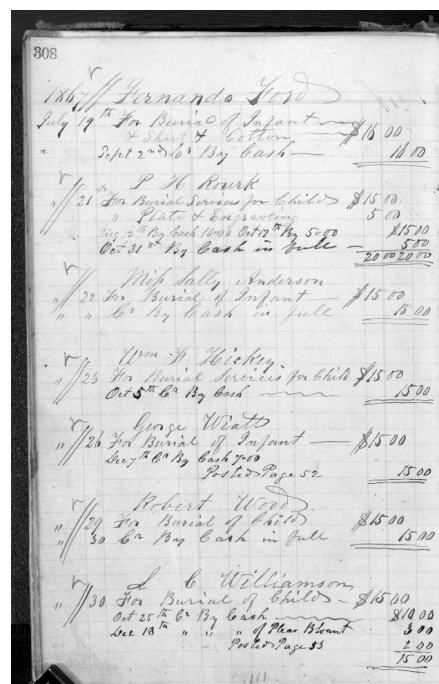 308
186 Fernando Ford
July 19th For Burial of Infant
& Shirt & Cotton $16 00
" Sept 2nd Cr By Cash 16 00
P H Rourk
" 21 For Burial Services for Child $15 00
" Plate & Engraving 5 00
Aug 12th By Cash 10.00 Oct 12th By 5.00 $15 00
Oct 31st By Cash in full — 5 00
20 00 20 00
Miss Sally Anderson
" 22 For Burial of Infant $15 00
" " Cr By Cash in full 15 00
Wm H Hickey
" 23 For Burial Services for Child $15 00
Oct 5th Cr By Cash 15 00
George Wiatt
" 26 For Burial of Infant — $15 00
Dec 7th Cr By Cash 7.00
Posted Page 52 15 00
Robert Wood
" 29 For Burial of Child $15 00
" 30 Cr By Cash in full 15 00
C Williamson
" 30 For Burial of Child — $15 00
Oct 25th Cr By Cash $10 00
Dec 18th " " " of Pleas Blount 3 00
Posted Page 53 2 00
15 00